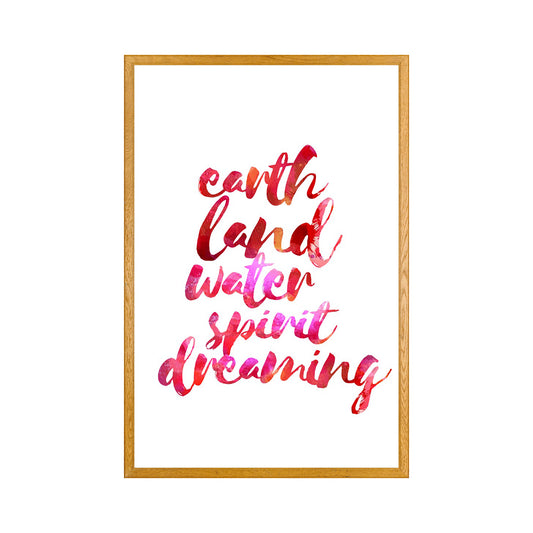 earth
land
water
spirit
dreaming